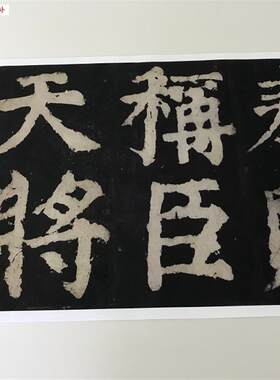 稱臣
天將